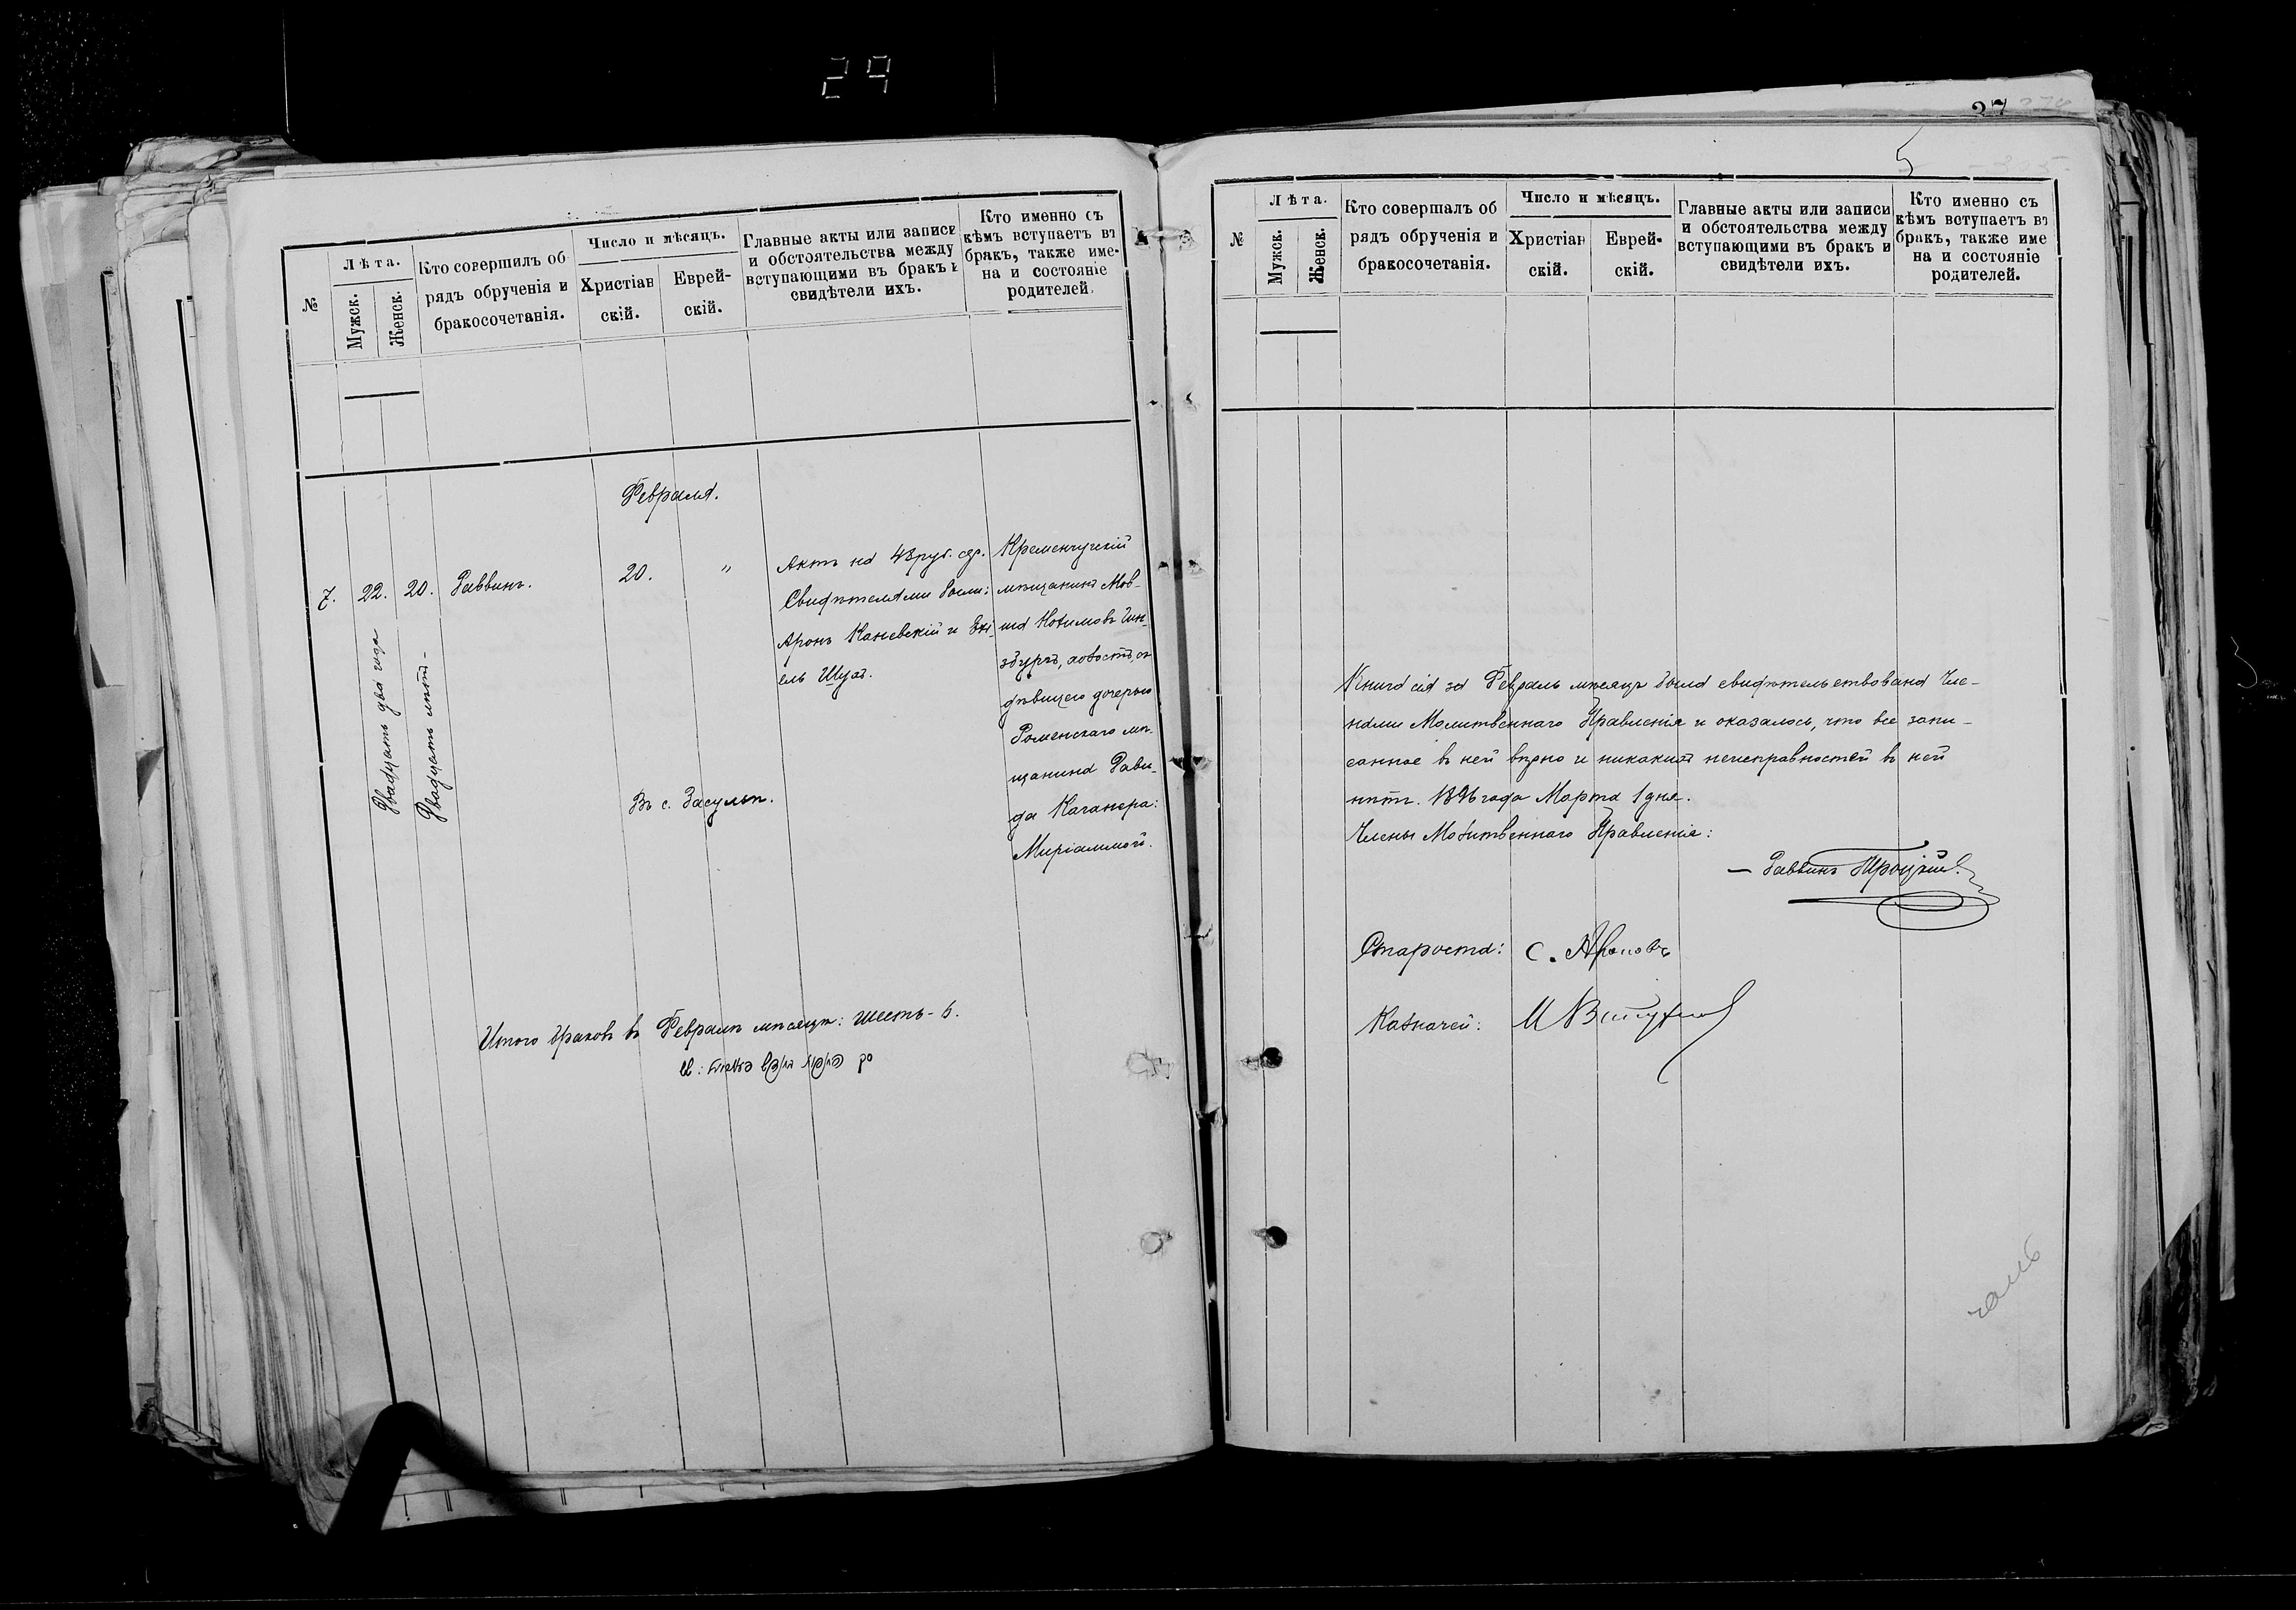 29
37
5
№
Лѣта.
Мужск.
Женск.
Кто совершилъ об
рядъ обрученія и
бракосочетанія.
Число и мѣсяцъ.
Христіан
скій.
Еврей-
скій.
Главные акты или записи
и обстоятельства между
вступающими въ бракъ и
свидѣтели ихъ.
Кто именно съ
кѣмъ вступаетъ въ
бракъ, также име-
на и состояніе
родителей.
Февраля.
7.
22.
Двадцать два года
20.
Двадцать лѣтъ-
Раввинъ.
20.
"
Въ с. Засульи.
Актъ на 48 руб. сер.
Свидѣтелями были:
Аронъ Каневскій и
ель Шуб.
Кременчугскій
мѣщанинъ Мов-
ша Гин-
збургъ, холостъ, съ
дѣвицею дочерью
Роменскаго мѣ-
щанина Дави-
да
Миріаммой.
Итого браковъ въ Февралѣ мѣсяцѣ: шесть - 6.
№
Лѣта.
Мужск.
Женск.
Кто совершалъ об
рядъ обрученія и
бракосочетанія.
Число и мѣсяцъ.
Христіан
скій.
Еврей-
скій.
Главные акты или записи
и обстоятельства между
вступающими въ бракъ и
свидѣтели ихъ.
Кто именно съ
кѣмъ вступаетъ въ
бракъ, также име
на и состояніе
родителей.
Книга сія за Февраль мѣсяцъ была свидѣтельствована Чле-
нами Молитвеннаго Правленія и оказалось, что все запи-
санное въ ней вѣрно и никакихъ неисправностей въ ней
нѣтъ. 1896 года Марта 1 дня.
Члены Молитвеннаго Правленія:
— Раввинъ Троцкій.
Староста: С. Ароновъ
Казначей: